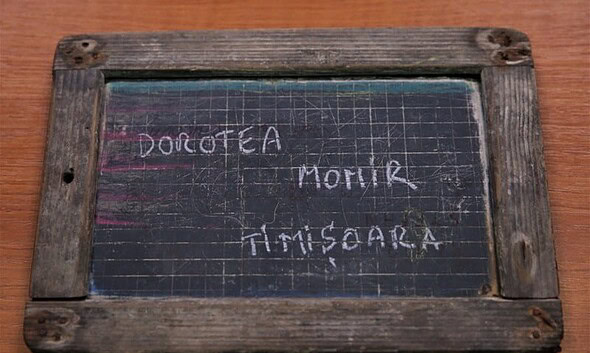 DOROTEA
MOMIR
TIMIȘOARA